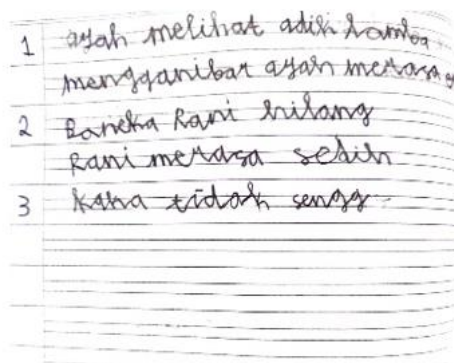 1 ayah melihat adik lomba
mengganibar ayah merasa
2 Boneka Rani hilang
Rani merasa sedih
3 kaka tidak sengg